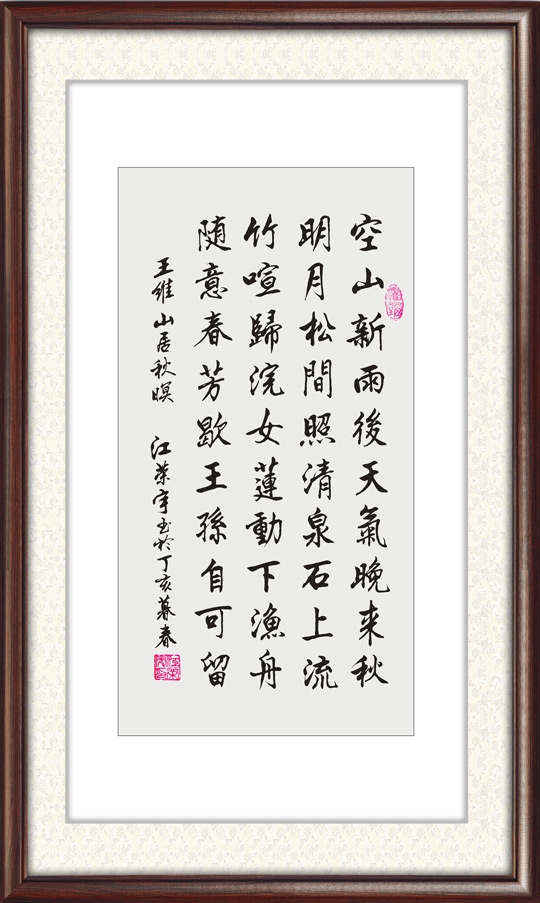 空山新雨後天氣晚来秋
明月松間照清泉石上流
竹喧歸浣女蓮動下漁舟
随意春芳歇王孫自可留
王維山居秋暝 江榮宇书於丁亥暮春